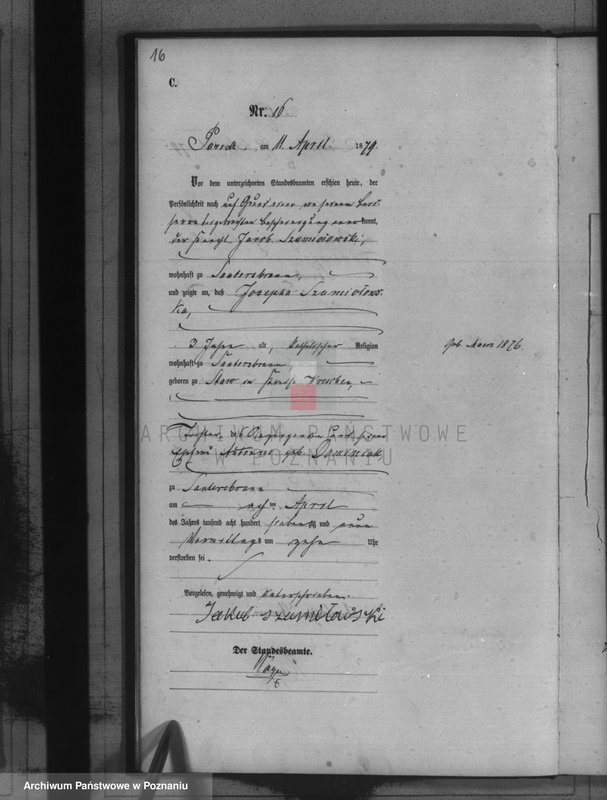 16
C.
Nr. 16
am 11 April 1879.
Vor dem unterzeichneten Standesbeamten erschien heute, der
Persönlichkeit nach auf Grund
kannt,
der Knecht Jacob Szumiolowski,
wohnhaft zu Santersbrunn,
und zeigte an, daß Josepha Szumiolows-
ka,
3 Jahre alt, katholischer Religion
wohnhaft zu Santersbrunn
geboren zu Staw im Kreise Wreschen,
Tochter des
Ehefrau geb. Dominiak
zu Santersbrunn
am acht ten April
des Jahres tausend acht hundert siebenzig und neun
Vormittags um zehn Uhr
verstorben sei.
Vorgelesen, genehmigt und unterschrieben.
Jakub szumiłowski
Der Standesbeamte.
Geb. März 1876
ARCHIWUM PAŃSTWOWE
W POZNANIU
Archiwum Państwowe w Poznaniu